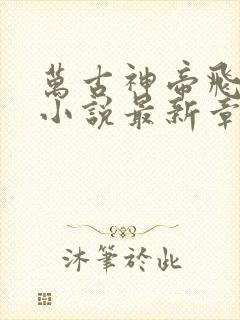 萬古神帝飛
小說最新章
沐筆於此